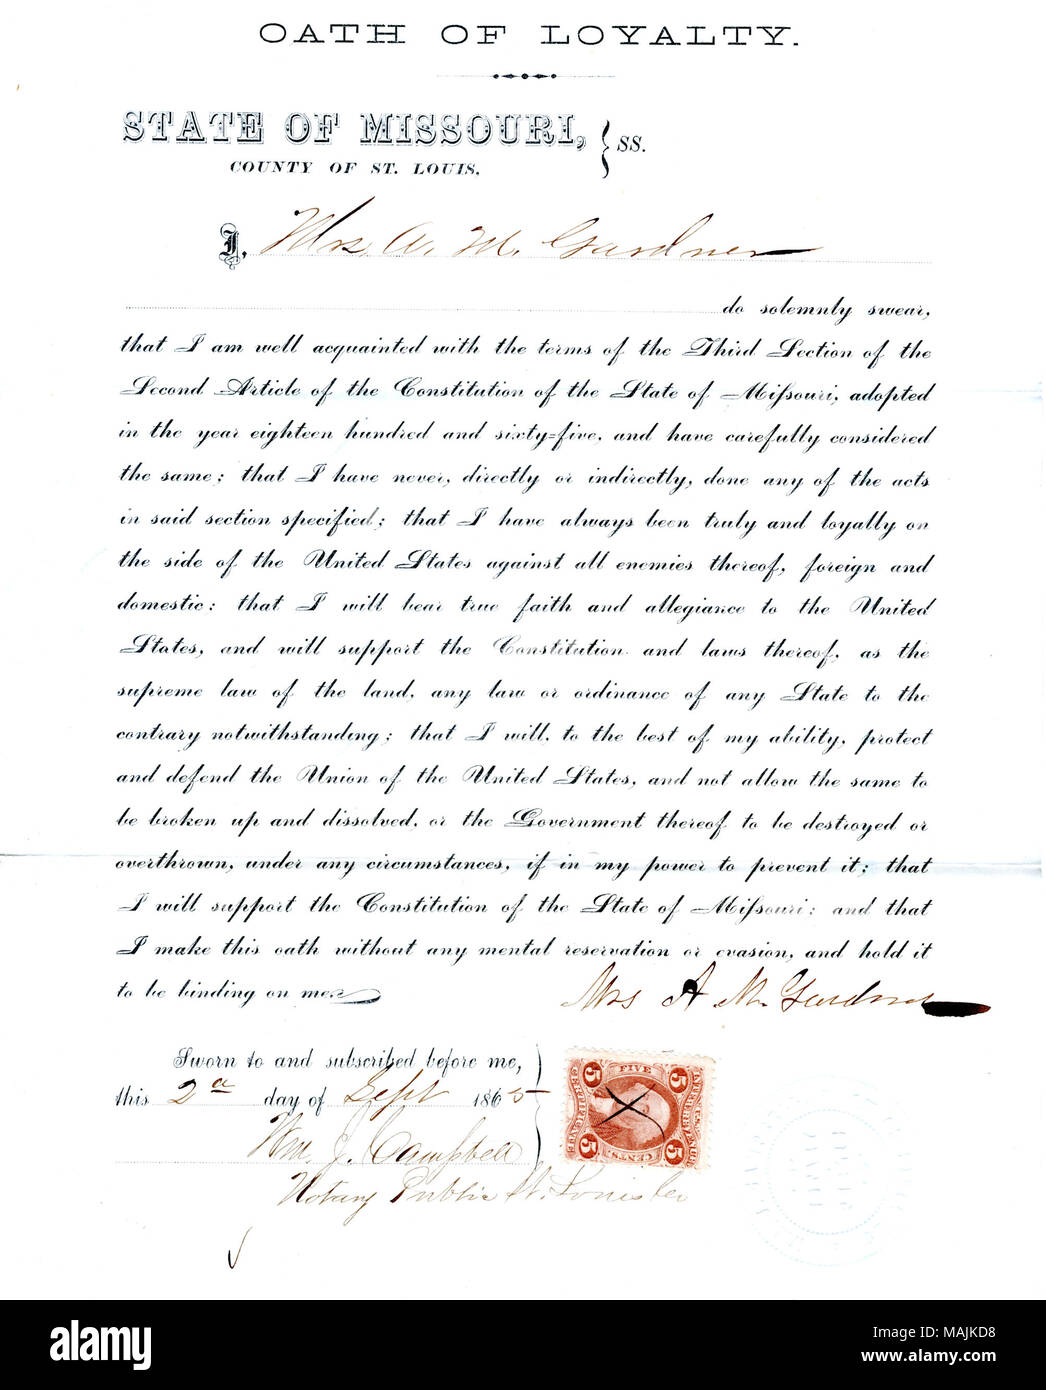 OATH OF LOYALTY.
STATE OF MISSOURI, } SS.
COUNTY OF ST. LOUIS.
I, Mrs. A. M. Gardner
do solemnly swear,
that I am well acquainted with the terms of the Third Section of the
Second Article of the Constitution of the State of Mifsouri, adopted
in the year eighteen hundred and sixty-five, and have carefully considered
the same; that I have never, directly or indirectly, done any of the acts
in said section specified; that I have always been truly and loyally on
the side of the United States against all enemies thereof, foreign and
domestic: that I will bear true faith and allegiance to the United
States, and will support the Constitution and laws thereof, as the
supreme law of the land, any law or ordinance of any State to the
contrary notwithstanding; that I will, to the best of my ability, protect
and defend the Union of the United States, and not allow the same to
be broken up and dissolved, or the Government thereof to be destroyed or
overthrown, under any circumstances, if in my power to prevent it; that
I will support the Constitution of the State of Mifsouri: and that
I make this oath without any mental reservation or evasion, and hold it
to be binding on me.
Mrs A M. Gardner
Sworn to and subscribed before me,
this 2d day of Sept 1865
Wm. J. Campbell
Notary Public St. Louis Co
FIVE
5 5
CERTIFICATE
U.S. INTER. REVENUE
5 5
CENTS.
a alamy stock photo
MAJKD8
www.alamy.com